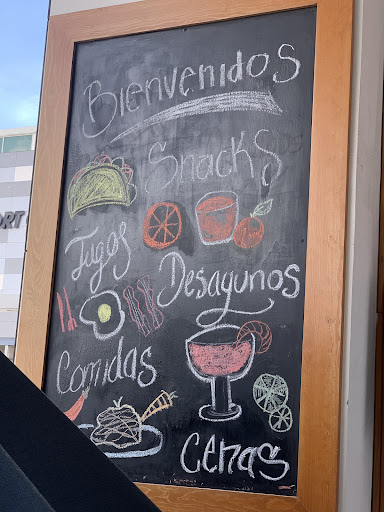 Bienvenidos
Snacks
Jugos
Desayunos
Comidas
Cenas
ORT